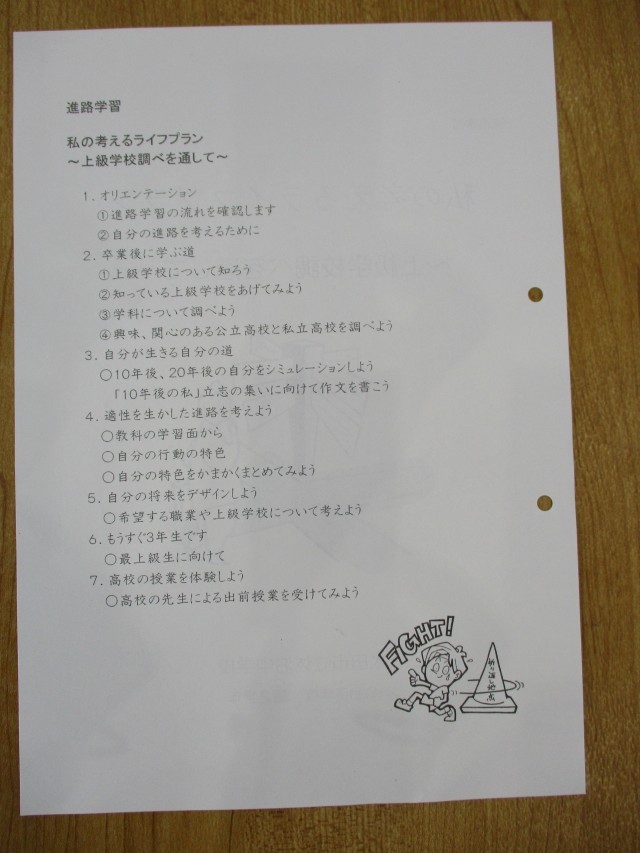 進路学習
私の考えるライフプラン
～上級学校調べを通して～
1．オリエンテーション
①進路学習の流れを確認します
②自分の進路を考えるために
2．卒業後に学ぶ道
①上級学校について知ろう
②知っている上級学校をあげてみよう
③学科について調べよう
④興味、関心のある公立高校と私立高校を調べよう
3．自分が生きる自分の道
○10年後、20年後の自分をシミュレーションしよう
「10年後の私」立志の集いに向けて作文を書こう
4．適性を生かした進路を考えよう
○教科の学習面から
○自分の行動の特色
○自分の特色をかまかくまとめてみよう
5．自分の将来をデザインしよう
○希望する職業や上級学校について考えよう
6．もうすぐ3年生です
○最上級生に向けて
7．高校の授業を体験しよう
○高校の先生による出前授業を受けてみよう
FIGHT!
折り返し地点